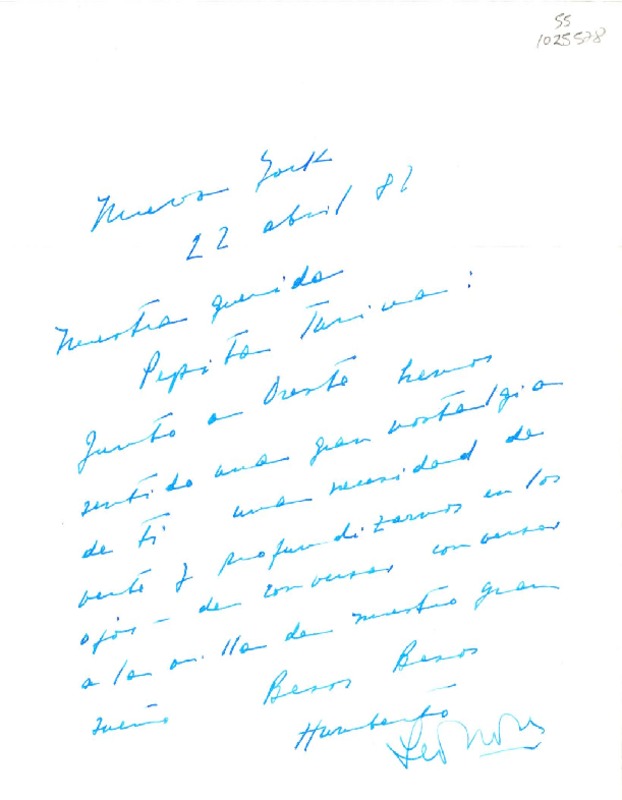 55
1025578
Nueva York
22 abril 81
Nuestra querida
Pepita Turina:
Junto a Oreste hemos
sentido una gran nostalgia
de ti una necesidad de
verte y profundizarnos en los
ojos - de conversar conversar
a la orilla de nuestro gran
sueño Besos Besos
Humberto
Leonora